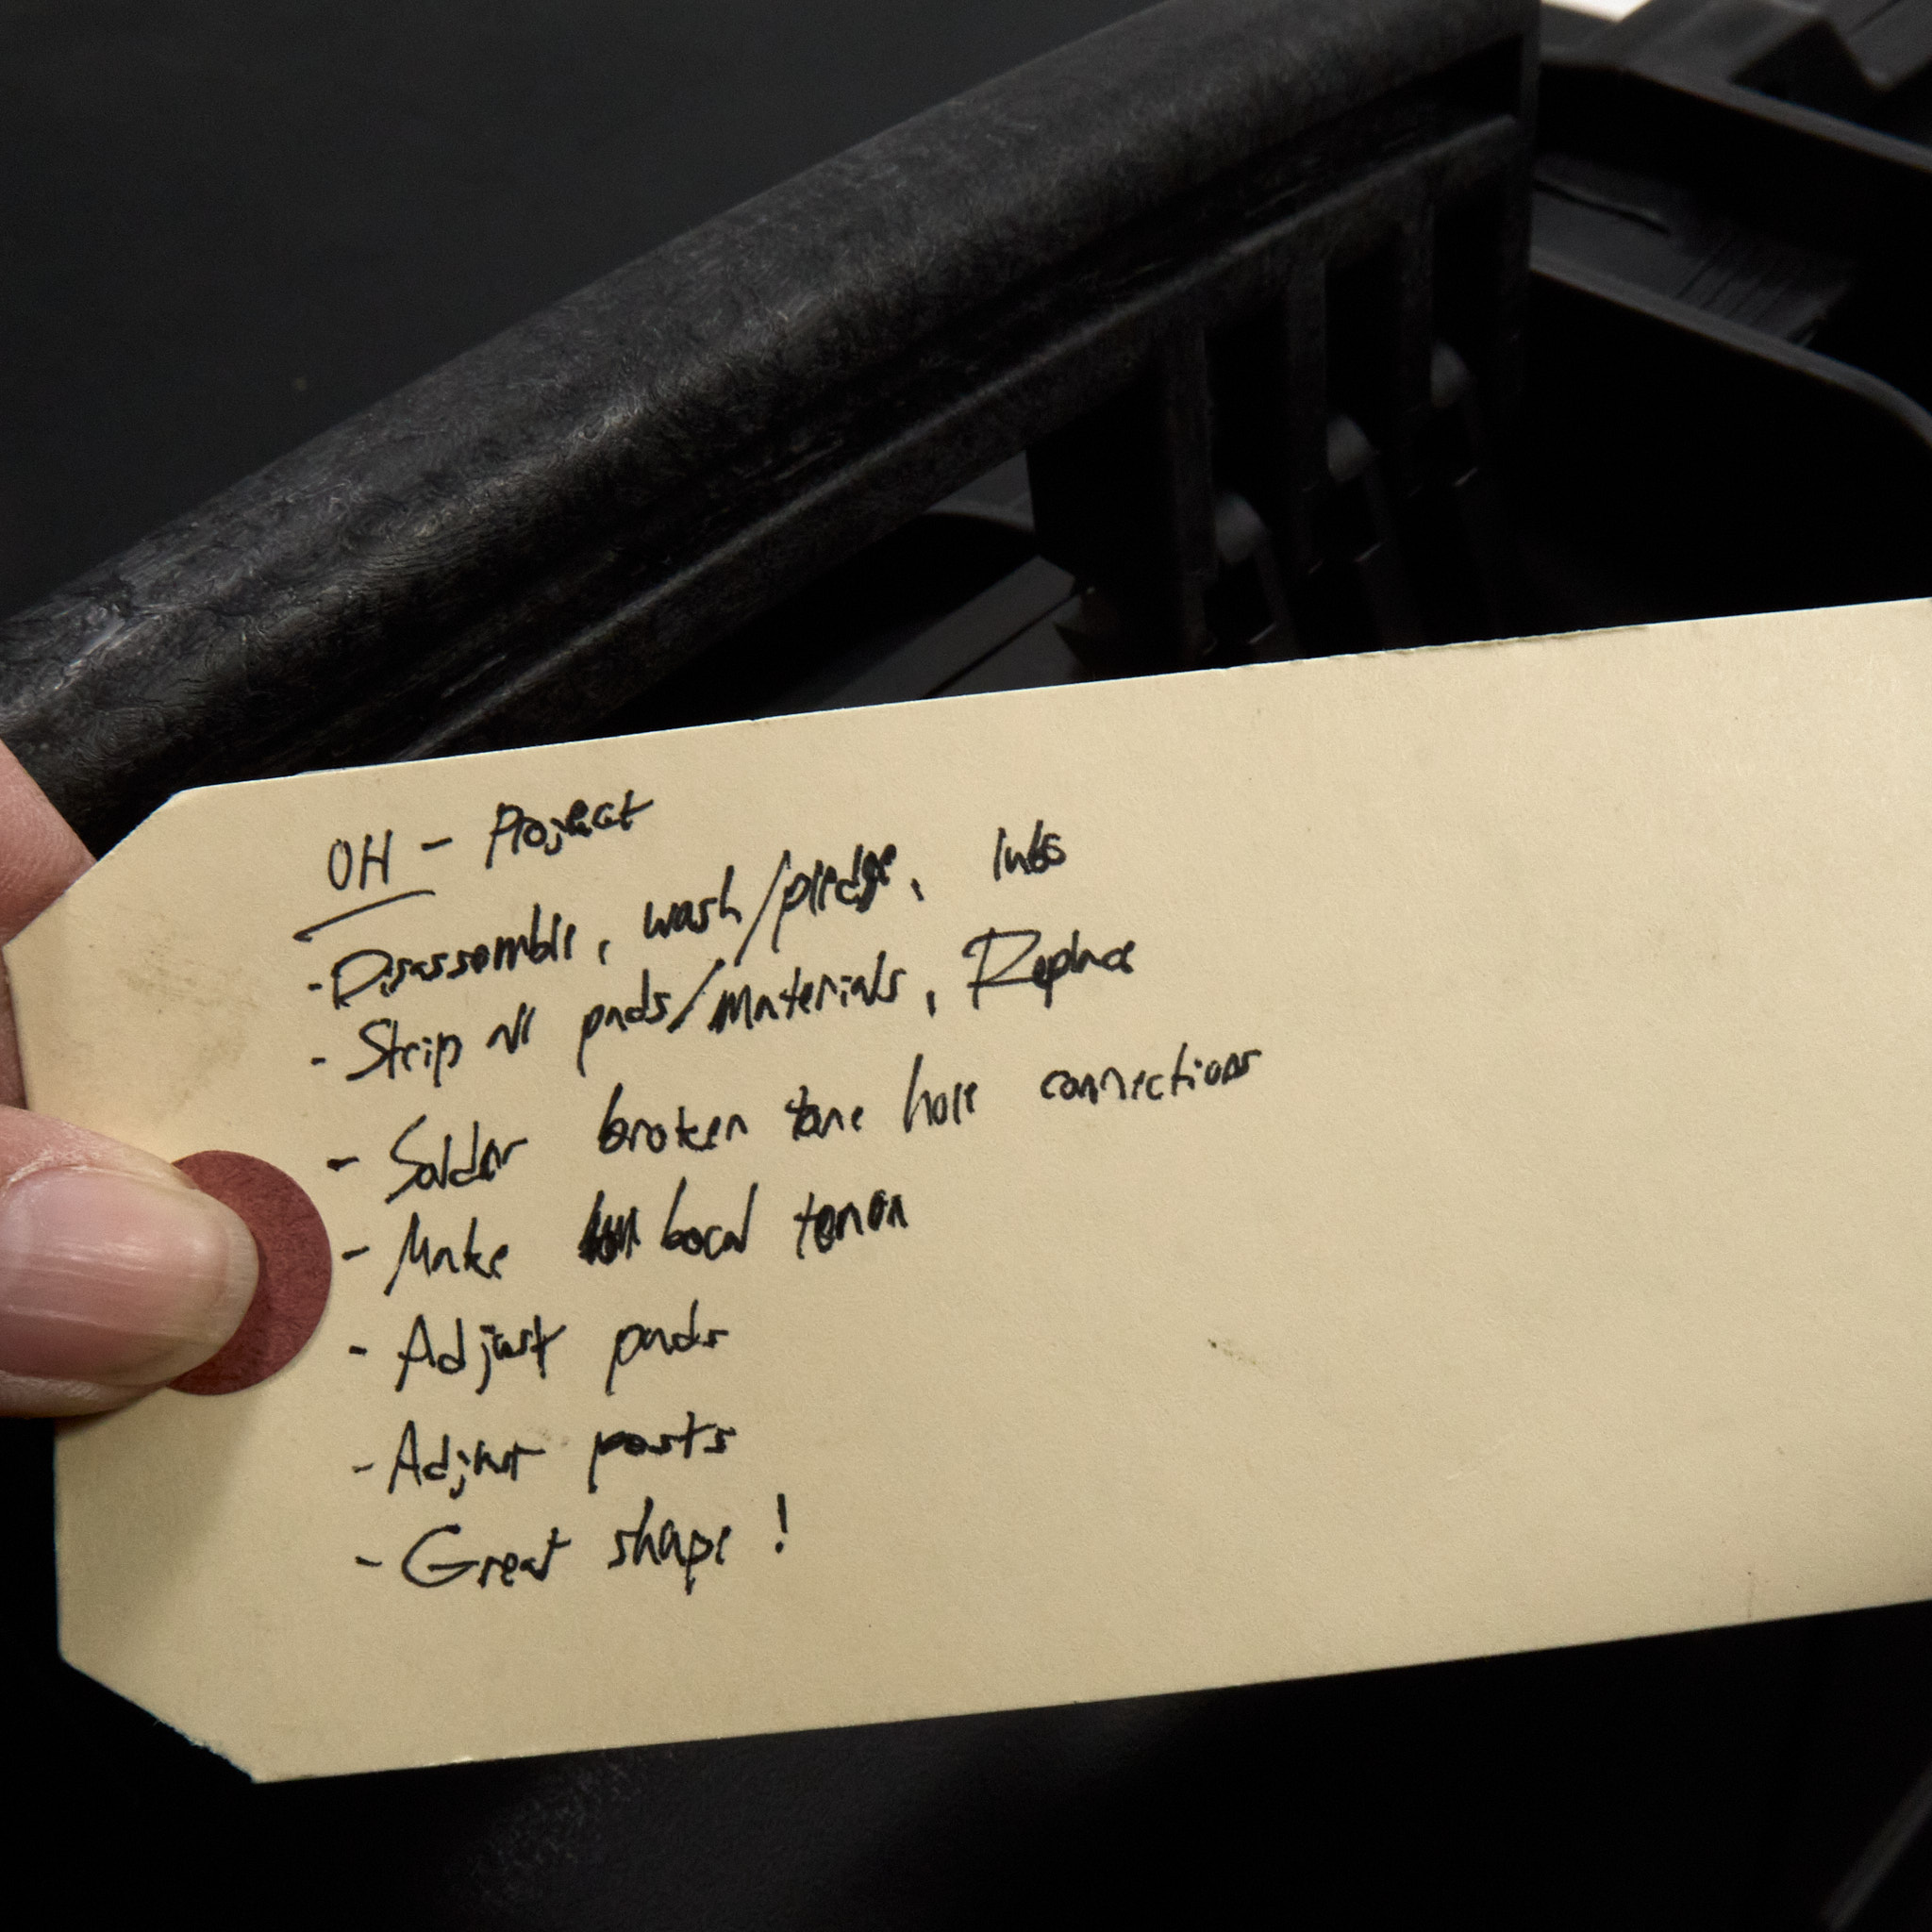 OH - Project
- Disassemble, wash/pledge, lube
- Strip all pads/materials, Replace
- Solder broken tone hole connections
- Make bocal tenon
- Adjust pads
- Adjust posts
- Great shape!